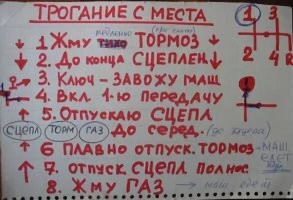 ТРОГАНИЕ С МЕСТА
1 3
2 4 R
медленно
1 Жму тихо ТОРМОЗ
2. До конца СЦЕПЛЕН.
3. Ключ - ЗАВОЖУ МАШ
4. Вкл. 1-ю ПЕРЕДАЧУ
5. Отпускаю СЦЕПЛ
СЦЕПЛ ТОРМ ГАЗ До серед.
6 ПЛАВНО отпуск. ТОРМОЗ - МАШ ЕДЕТ
7. отпуск СЦЕПЛ полнос
8. Жму ГАЗ → маш едет